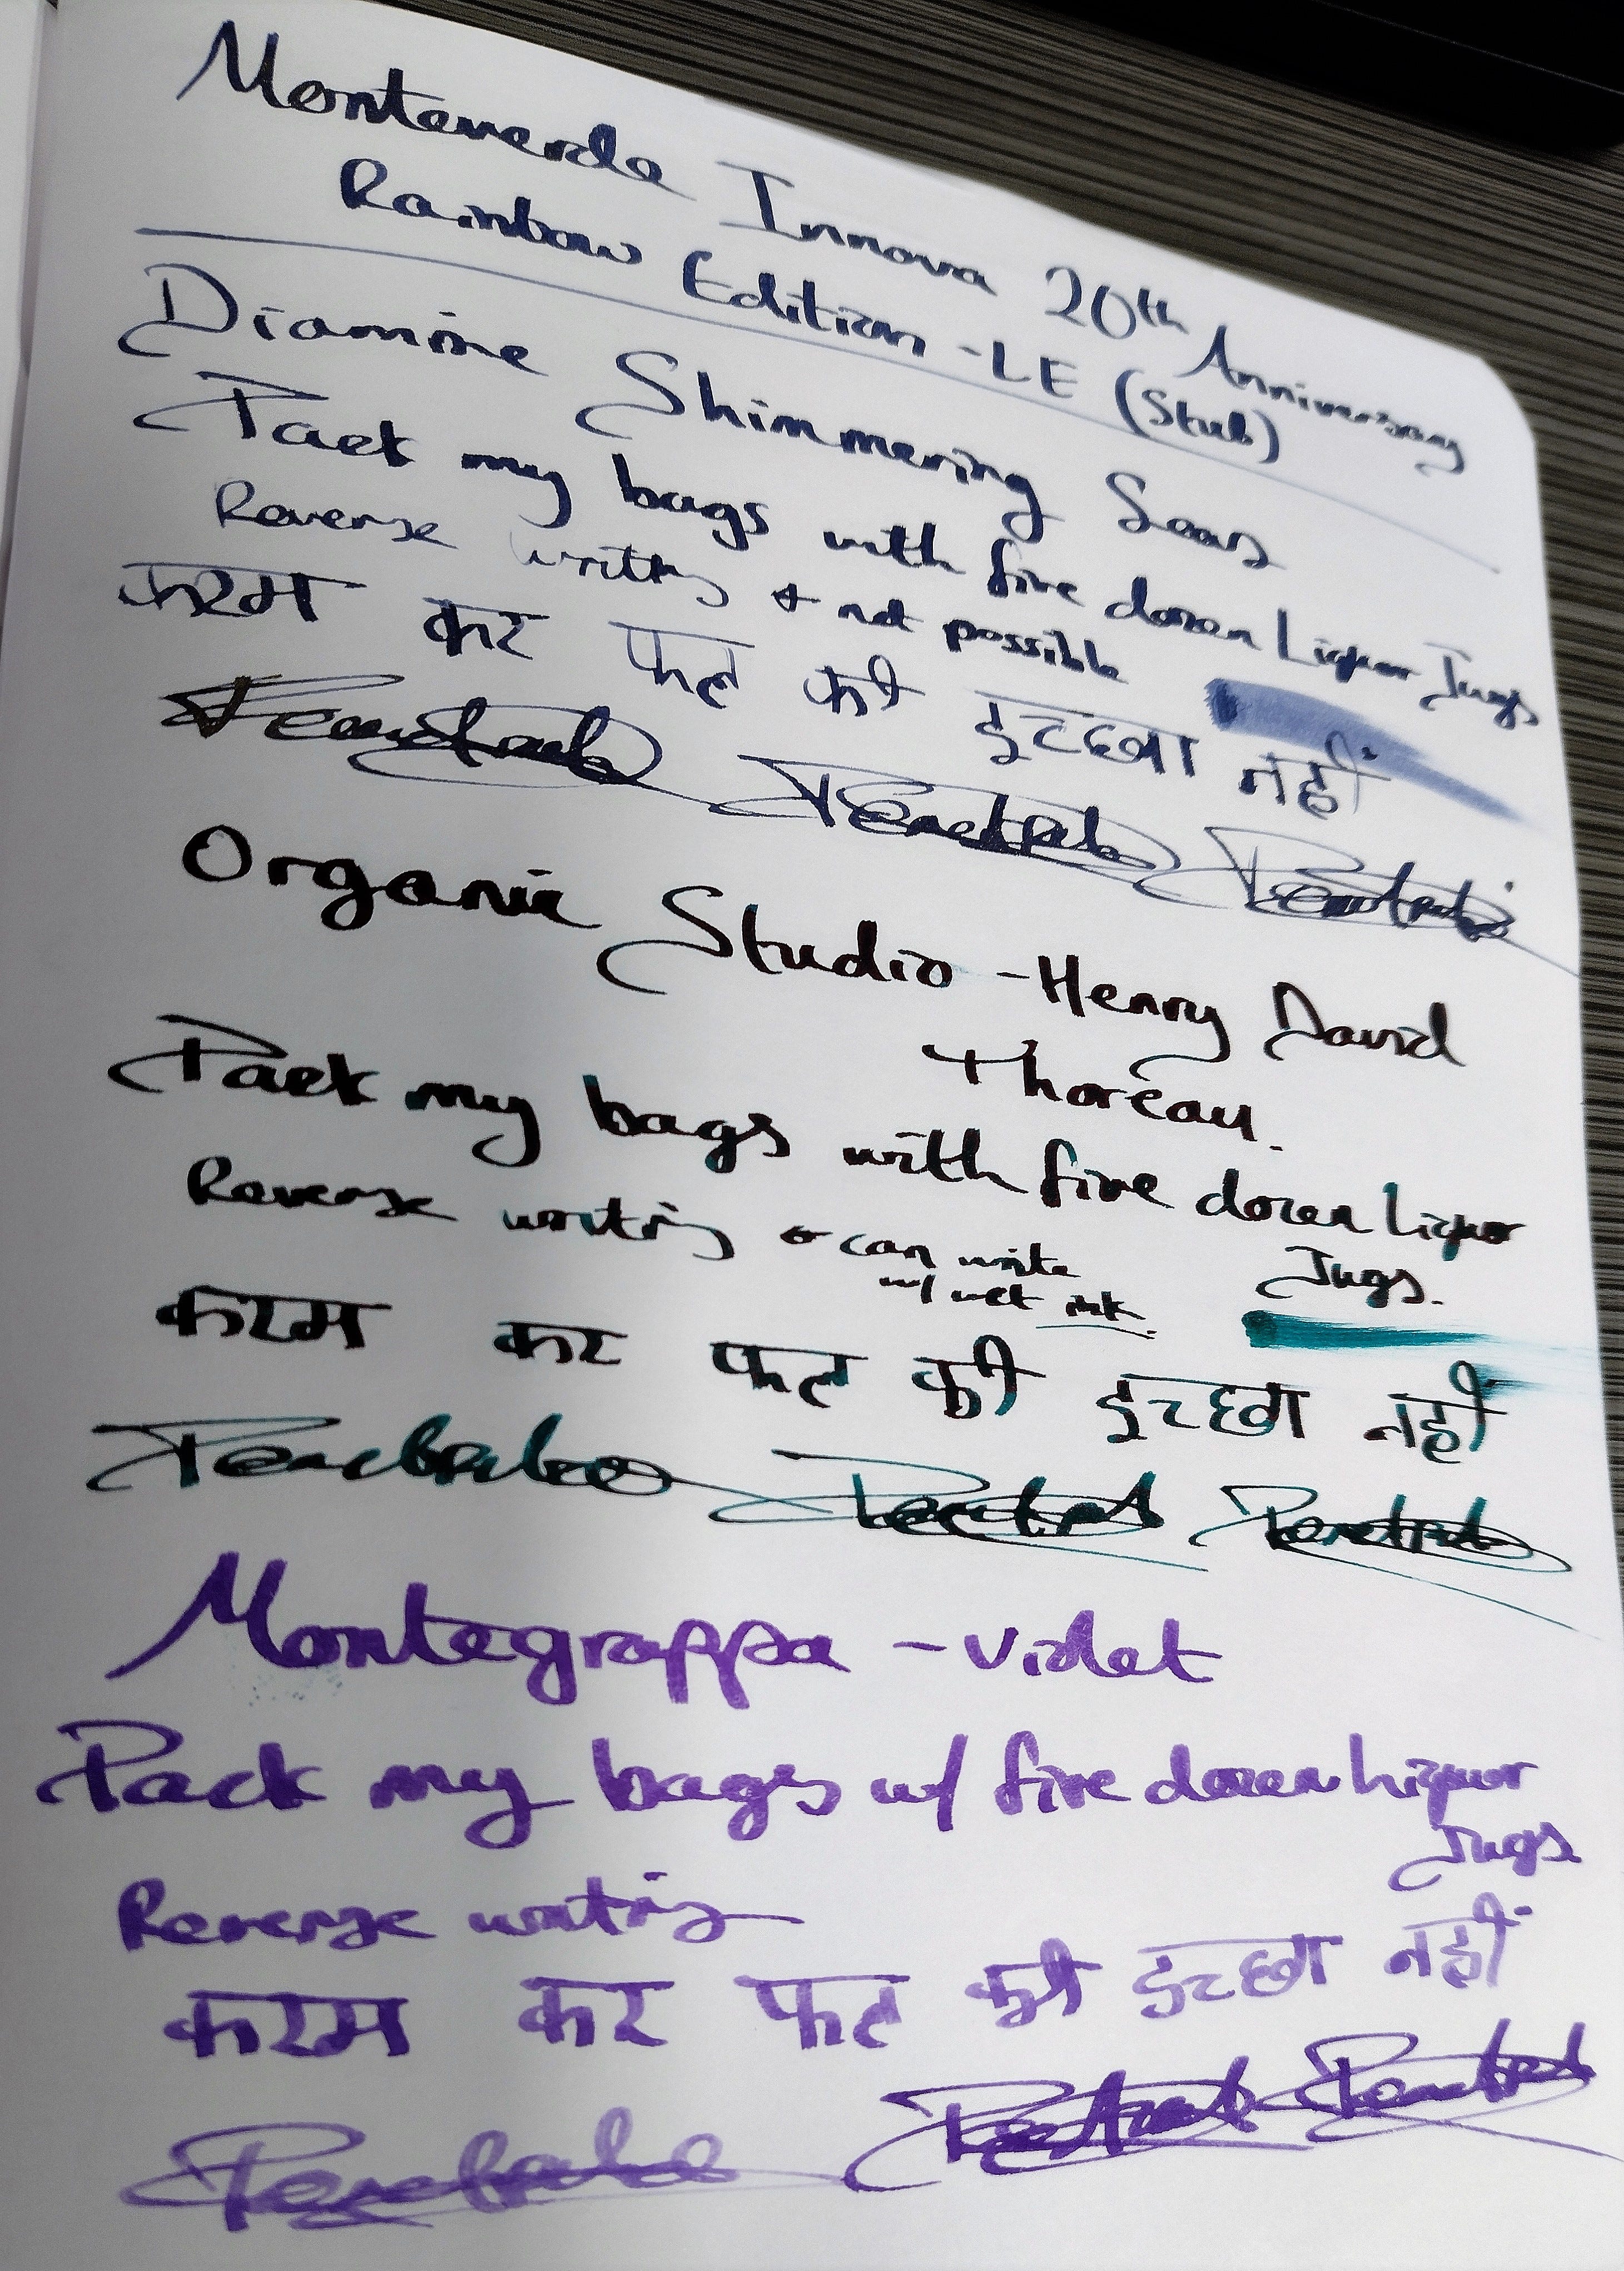 Monteverde Innova 20th Anniversary
Rainbow Edition - LE (Stub)
Diamine Shimmering Seas
Pack my bags with five dozen Liquor Jugs
Reverse writing not possible
करम कर फल की इच्छा नहीं
Organic Studio - Henry David
Thoreau.
Pack my bags with five dozen liquor
Jugs.
Reverse writing can write
w/ wet ink.
करम कर फल की इच्छा नहीं
Montegrappa - Violet
Pack my bags w/ five dozen liquor
Jugs
Reverse writing
करम कर फल की इच्छा नहीं